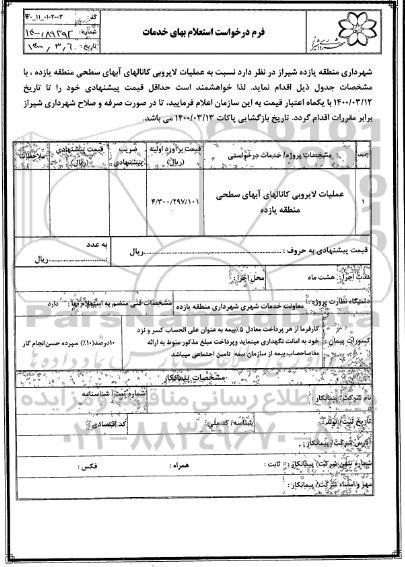 فرم درخواست استعلام بهای خدمات
شماره: ۱۴۰۰/۸۹۳۹۲
تاریخ: ۱۴۰۰/۳/۶
شهرداری منطقه یازده شیراز در نظر دارد نسبت به عملیات لایروبی کانالهای آبهای سطحی منطقه یازده ، با
مشخصات جدول ذیل اقدام نماید. لذا خواهشمند است حداقل قیمت پیشنهادی خود را تا تاریخ
۱۴۰۰/۰۳/۱۲ با یکماه اعتبار قیمت به این سازمان اعلام فرمایید، تا در صورت صرفه و صلاح شهرداری شیراز
برابر مقررات اقدام گردد. تاریخ بازگشایی پاکات ۱۴۰۰/۰۳/۱۳ می باشد.
ردیف مشخصات پروژه/ خدمات درخواستی قیمت برآورد اولیه (ریال) ضریب پیشنهادی قیمت پیشنهادی (ریال) ملاحظات
۱ عملیات لایروبی کانالهای آبهای سطحی منطقه یازده ۴/۳۰۰/۲۹۷/۱۰۱
قیمت پیشنهادی به حروف : ................ریال به عدد ................ریال
مدت اجرا: هشت ماه محل اجرا:
دستگاه نظارت پروژه: معاونت خدمات شهری شهرداری منطقه یازده مشخصات فنی منضم به استعلام بها: دارد
کسورات پیمان: کارفرما از هر پرداخت معادل ۵٪بیمه به عنوان علی الحساب کسر و نزد
خود به امانت نگهداری مینماید وپرداخت مبلغ مذکور منوط به ارائه
مفاصاحساب بیمه از سازمان بیمه تامین اجتماعی میباشد
۱۰درصد(۱۰٪) سپرده حسن انجام کار
مشخصات پیمانکار
نام شرکت/ پیمانکار: شماره ثبت/ شناسنامه
تاریخ ثبت/ تولد: شناسه/ کد ملی: کد اقتصادی:
آدرس شرکت/ پیمانکار:
شماره تلفن شرکت/ پیمانکار: ثابت : همراه : فکس :
مهر و امضاء شرکت/ پیمانکار:
ParsNamadData
۰۲۱-۸۸۳۴۹۶۷۰